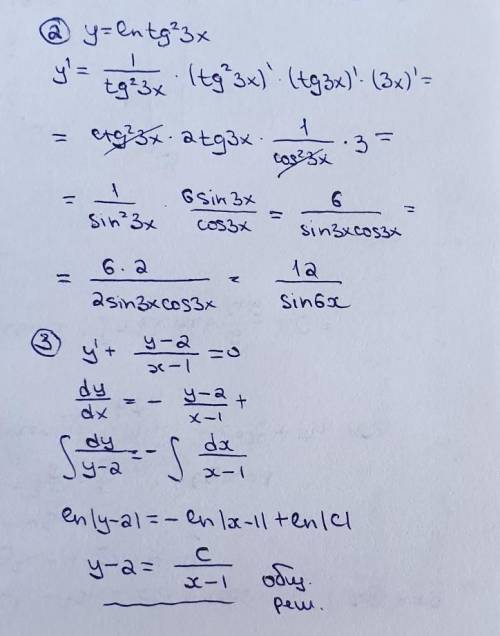 ② y=ln tg²3x
y' = 1/tg²3x · (tg²3x)' · (tg3x)' · (3x)' =
= ctg²3x · 2tg3x · 1/cos²3x · 3 =
= 1/sin²3x · 6sin3x/cos3x = 6/sin3xcos3x =
= 6·2/2sin3xcos3x = 12/sin6x
③ y' + y-2/x-1 = 0
dy/dx = - y-2/x-1 +
∫ dy/y-2 = - ∫ dx/x-1
ln|y-2| = -ln|x-1| + ln|C|
y-2 = C/x-1 общ.
реш.